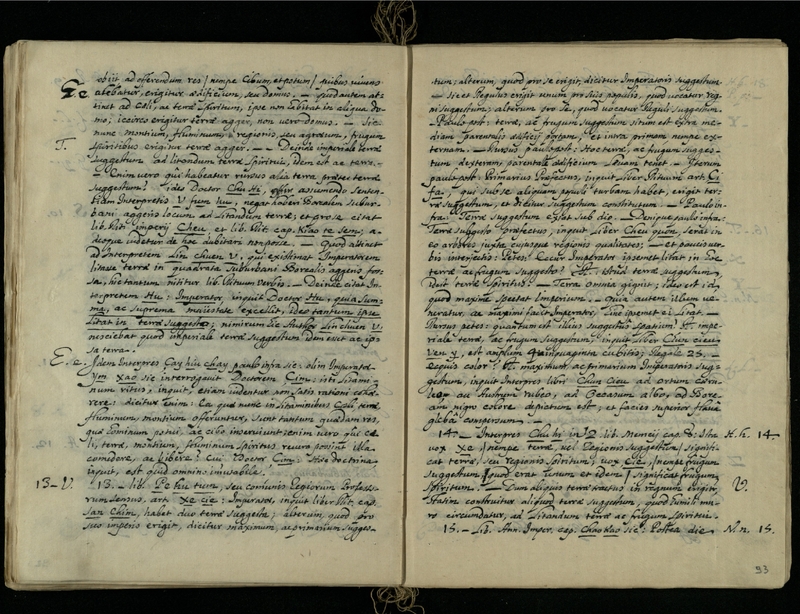 obiit, ad offerendum res / nempe Cibum, et potum / quibus vivens
Ee
alebatur, erigitur ædificium, seu domus. — Quod autem at-
tinet ad Cæli, ac terræ Spiritum, ipse non habitat in aliqua do-
mo; idcirco erigitur terræ agger, non vero domus. — Sic
nunc montium, fluminum, regionis, seu agrorum, frugum
Spiritibus erigitur terræ agger. — Deinde imperiale terræ
T.
Suggestum ad litandum terræ Spiritui, idem est ac terra. —
— Enim vero qui habeatur rursus alia terra præter terræ
Suggestum? ideo Doctor Chu Hi, assumendo Senten-
tiam Interpretis U fum hu, negat adesse Borealem Subur-
bani aggeris locum ad Litandum terræ; et pro se citat
lib. Riti imperij Cheu et lib. Riti cap. Kiao te sem; a-
deoque videtur de hoc dubitari non posse. — Quod attinet
ad Interpretem Lin chuen V, qui existimat Imperatorem
litasse terræ in quadrata Suburbani Borealis aggeris fos-
sa, hic tantum nititur lib. Rituum verbis. — Deinde citat In-
terpretem Hu: Imperator, inquit Doctor Hu, quia Sum-
ma, ac Suprema maiestate excellit, ideo tantum ipse
Litat in terræ Suggesto; nimirum hic Author Lin chuen V.
nesciebat quod imperiale terræ Suggestum idem esset ac ip-
sa terra.
E. e.
Idem Interpres Cay hiu chay paulo infra sic: olim Imperator
Ym xao sic interrogavit Doctorem Cim: isti Litami-
num ritus, inquit, etiam videntur non satis rationi cohæ-
rere: dicitur enim: Ea quæ nunc in Litaminibus Cæli, terræ
fluminum, montium offeruntur, sunt tantum quædam res,
quæ hominum potui, ac cibo inserviunt; enim vero qui cæ-
li, terræ, montium, fluminum Spiritus revera possint illa
comedere, ac bibere? Cui Doctor Cim: Hæc doctrina
inquit, est quid omnino inusabile.
13 — V. 13. — lib. Pe hu tum, seu comunis Regiorum Professo-
rum Sensus, art. Xe cie: Imperator, inquit liber Rit. cap.
San Chim, habet duo terræ suggesta; alterum, quod pro
suo imperio erigit, dicitur maximum, ac primarium Sugges-
tum; alterum, quod pro se erigit, dicitur Imperatoris Suggestum.
— Sic et Regulus erigit unum pro suis populis, quod vocatur reg-
ni Suggestum; alterum pro se, quod vocatur Reguli Suggestum.
Paulo post: terræ, ac frugum Suggestum situm est extra me-
diam parentalis ædificij portam, et intra primam nempe ex-
ternam. — Rursus paulo post: Hoc terræ, ac frugum Sugges-
tum dexteram parentalis ædificium Sonam tenet. — Iterum
paulo post: Primarius Præfectus, inquit liber Rituum art. Ci
Fa, qui sub se aliquam populi turbam habet, erigit ter-
ræ suggestum, et dicitur Suggestum constitutum. — Paulo in-
fra: Terræ Suggestum est sub dio. — Denique paulo infra:
Terræ Suggesto præfectus, inquit Liber Cheu quon, serat in
eo arbores juxta cujusque regionis qualitates; — et paucis ver-
bis interjectis: Petes: Cur Imperator ipsemet litat in hoc
terræ ac frugum Suggesto? R. istud terræ suggestum,
idest terræ Spiritus. — Terra omnia gignit; ideo est id,
quod maxime spectat Imperium. — Quia autem illum ve-
neratur, ac maximi facit Imperator, hinc ipsemet ei Litat. —
Rursus petes: quantum est illius Suggesti spatium? R. impe-
riale terræ, ac frugum Suggestum, inquit liber Chun cieu
Ven y, est amplum quinquaginta cubitis; Reguli 25. —
Cujus color? R. maximi, ac primarium Imperatoris Sug-
gestum, inquit Interpres libri Chun Cieu ad ortum cæru-
leo ad Austrum rubeo, ad Occasum albo, ad Bore-
am nigro colore depictum est, et facies superior flava
gleba conspersum. —
14. — Interpres Chu hi in 2. lib. Memcij cap. 2: Ista H. h. 14
vox Xe / nempe terræ, vel Regionis Suggestum / Signifi-
cat terræ, seu regionis Spiritum; vox Cie, / nempe frugum
Suggestum / quod erat unum, et idem / Significat frugum
Spiritum. — Dum aliquis terræ tractus in regnum erigitur, V.
Statim construitur aliquod terræ suggestum, quod humili mu-
ro circundatur, ad Litandum terræ ac frugum Spiritui.
15. — Lib. Ann. Imper. cap. Chao kao sic: Postea die N. n. 15.
93